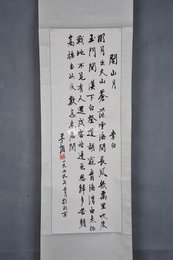 關山月 李白
明月出天山蒼茫雲海間長風幾萬里吹度
玉門關漢下白登道胡窺青海灣由來征
戰地不見有人還戍客望邊色思歸多苦顏
高樓當此夜歎息未應閑
一九七九年
北京